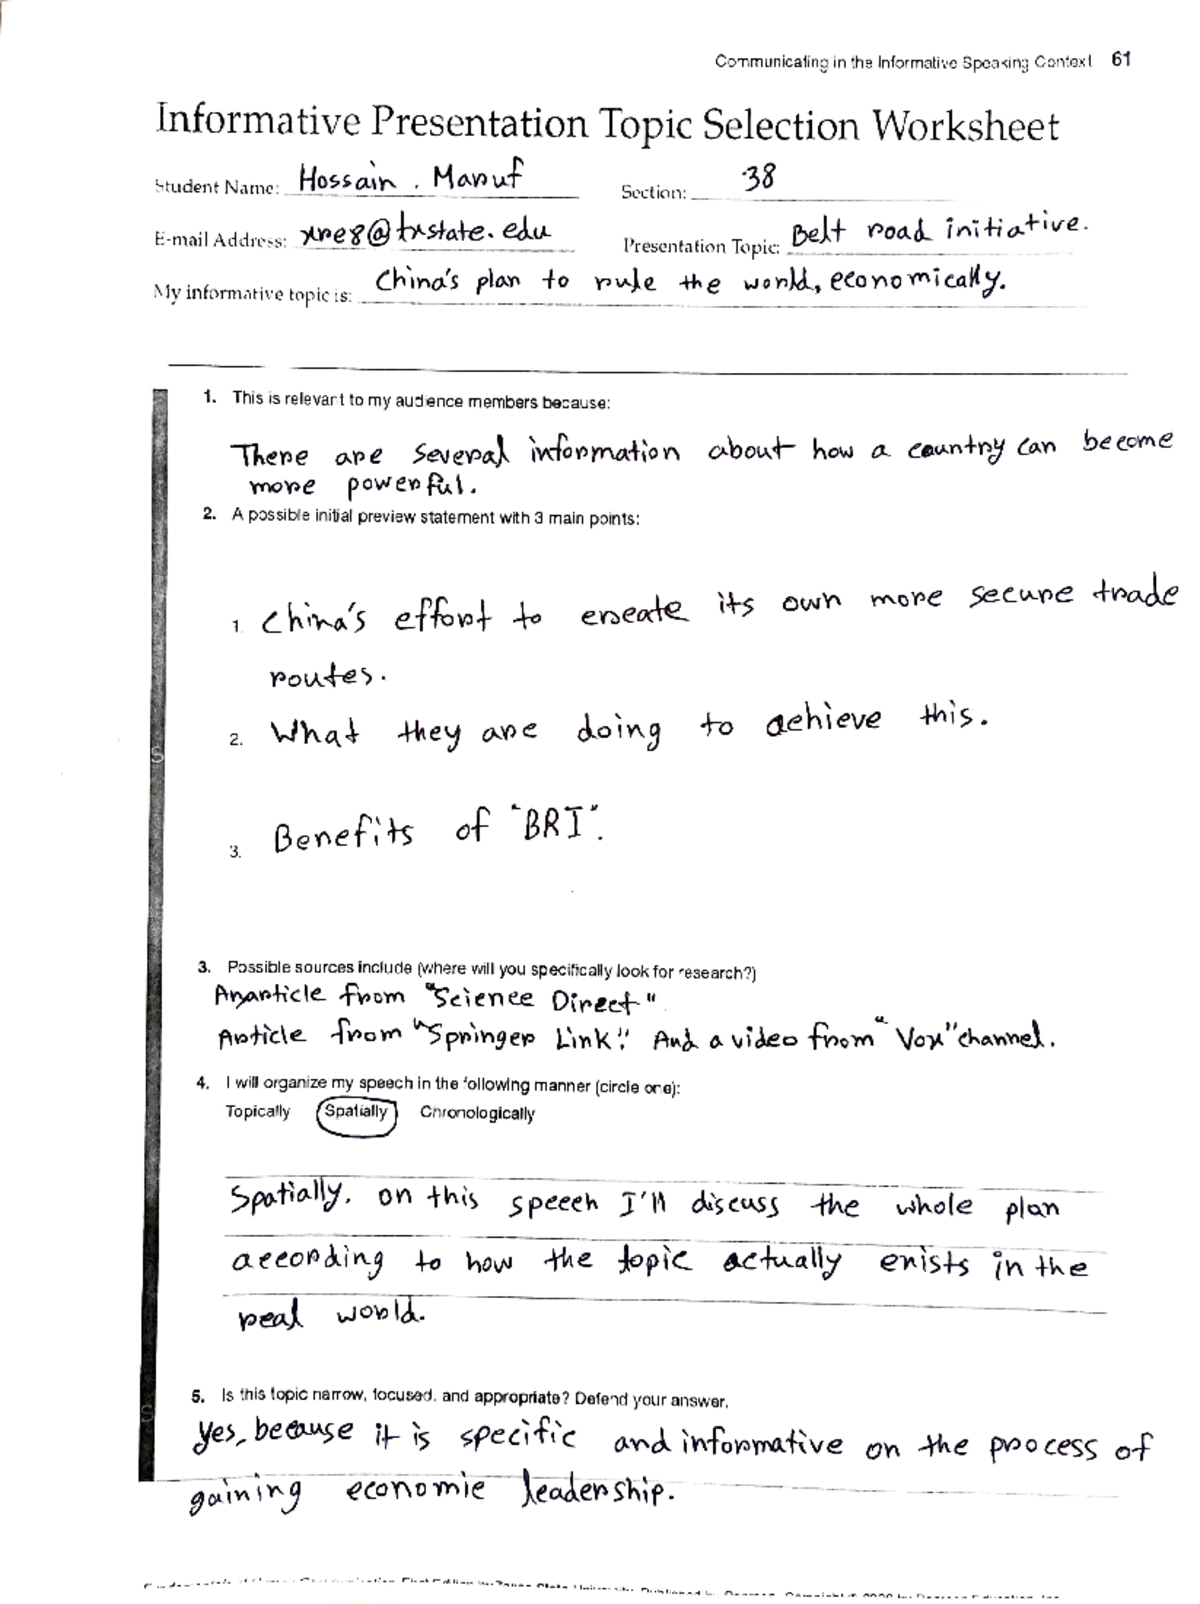 Communicating in the Informative Speaking Context 61
Informative Presentation Topic Selection Worksheet
Student Name: Hossain . Maruf Section: 38
E-mail Address: xre8@txstate.edu Presentation Topic: Belt road initiative.
My informative topic is: China's plan to rule the world, economically.
1. This is relevant to my audience members because:
There are several information about how a country can become
more powerful.
2. A possible initial preview statement with 3 main points:
1. China's effort to create its own more secure trade
routes.
2. What they are doing to achieve this.
3. Benefits of "BRI".
3. Possible sources include (where will you specifically look for research?)
An article from "Science Direct"
Article from "Springer Link". And a video from "Vox" channel.
4. I will organize my speech in the following manner (circle one):
Topically Spatially Chronologically
Spatially. on this speech I'll discuss the whole plan
according to how the topic actually exists in the
real world.
5. Is this topic narrow, focused, and appropriate? Defend your answer.
Yes, because it is specific and informative on the process of
gaining economic leadership.